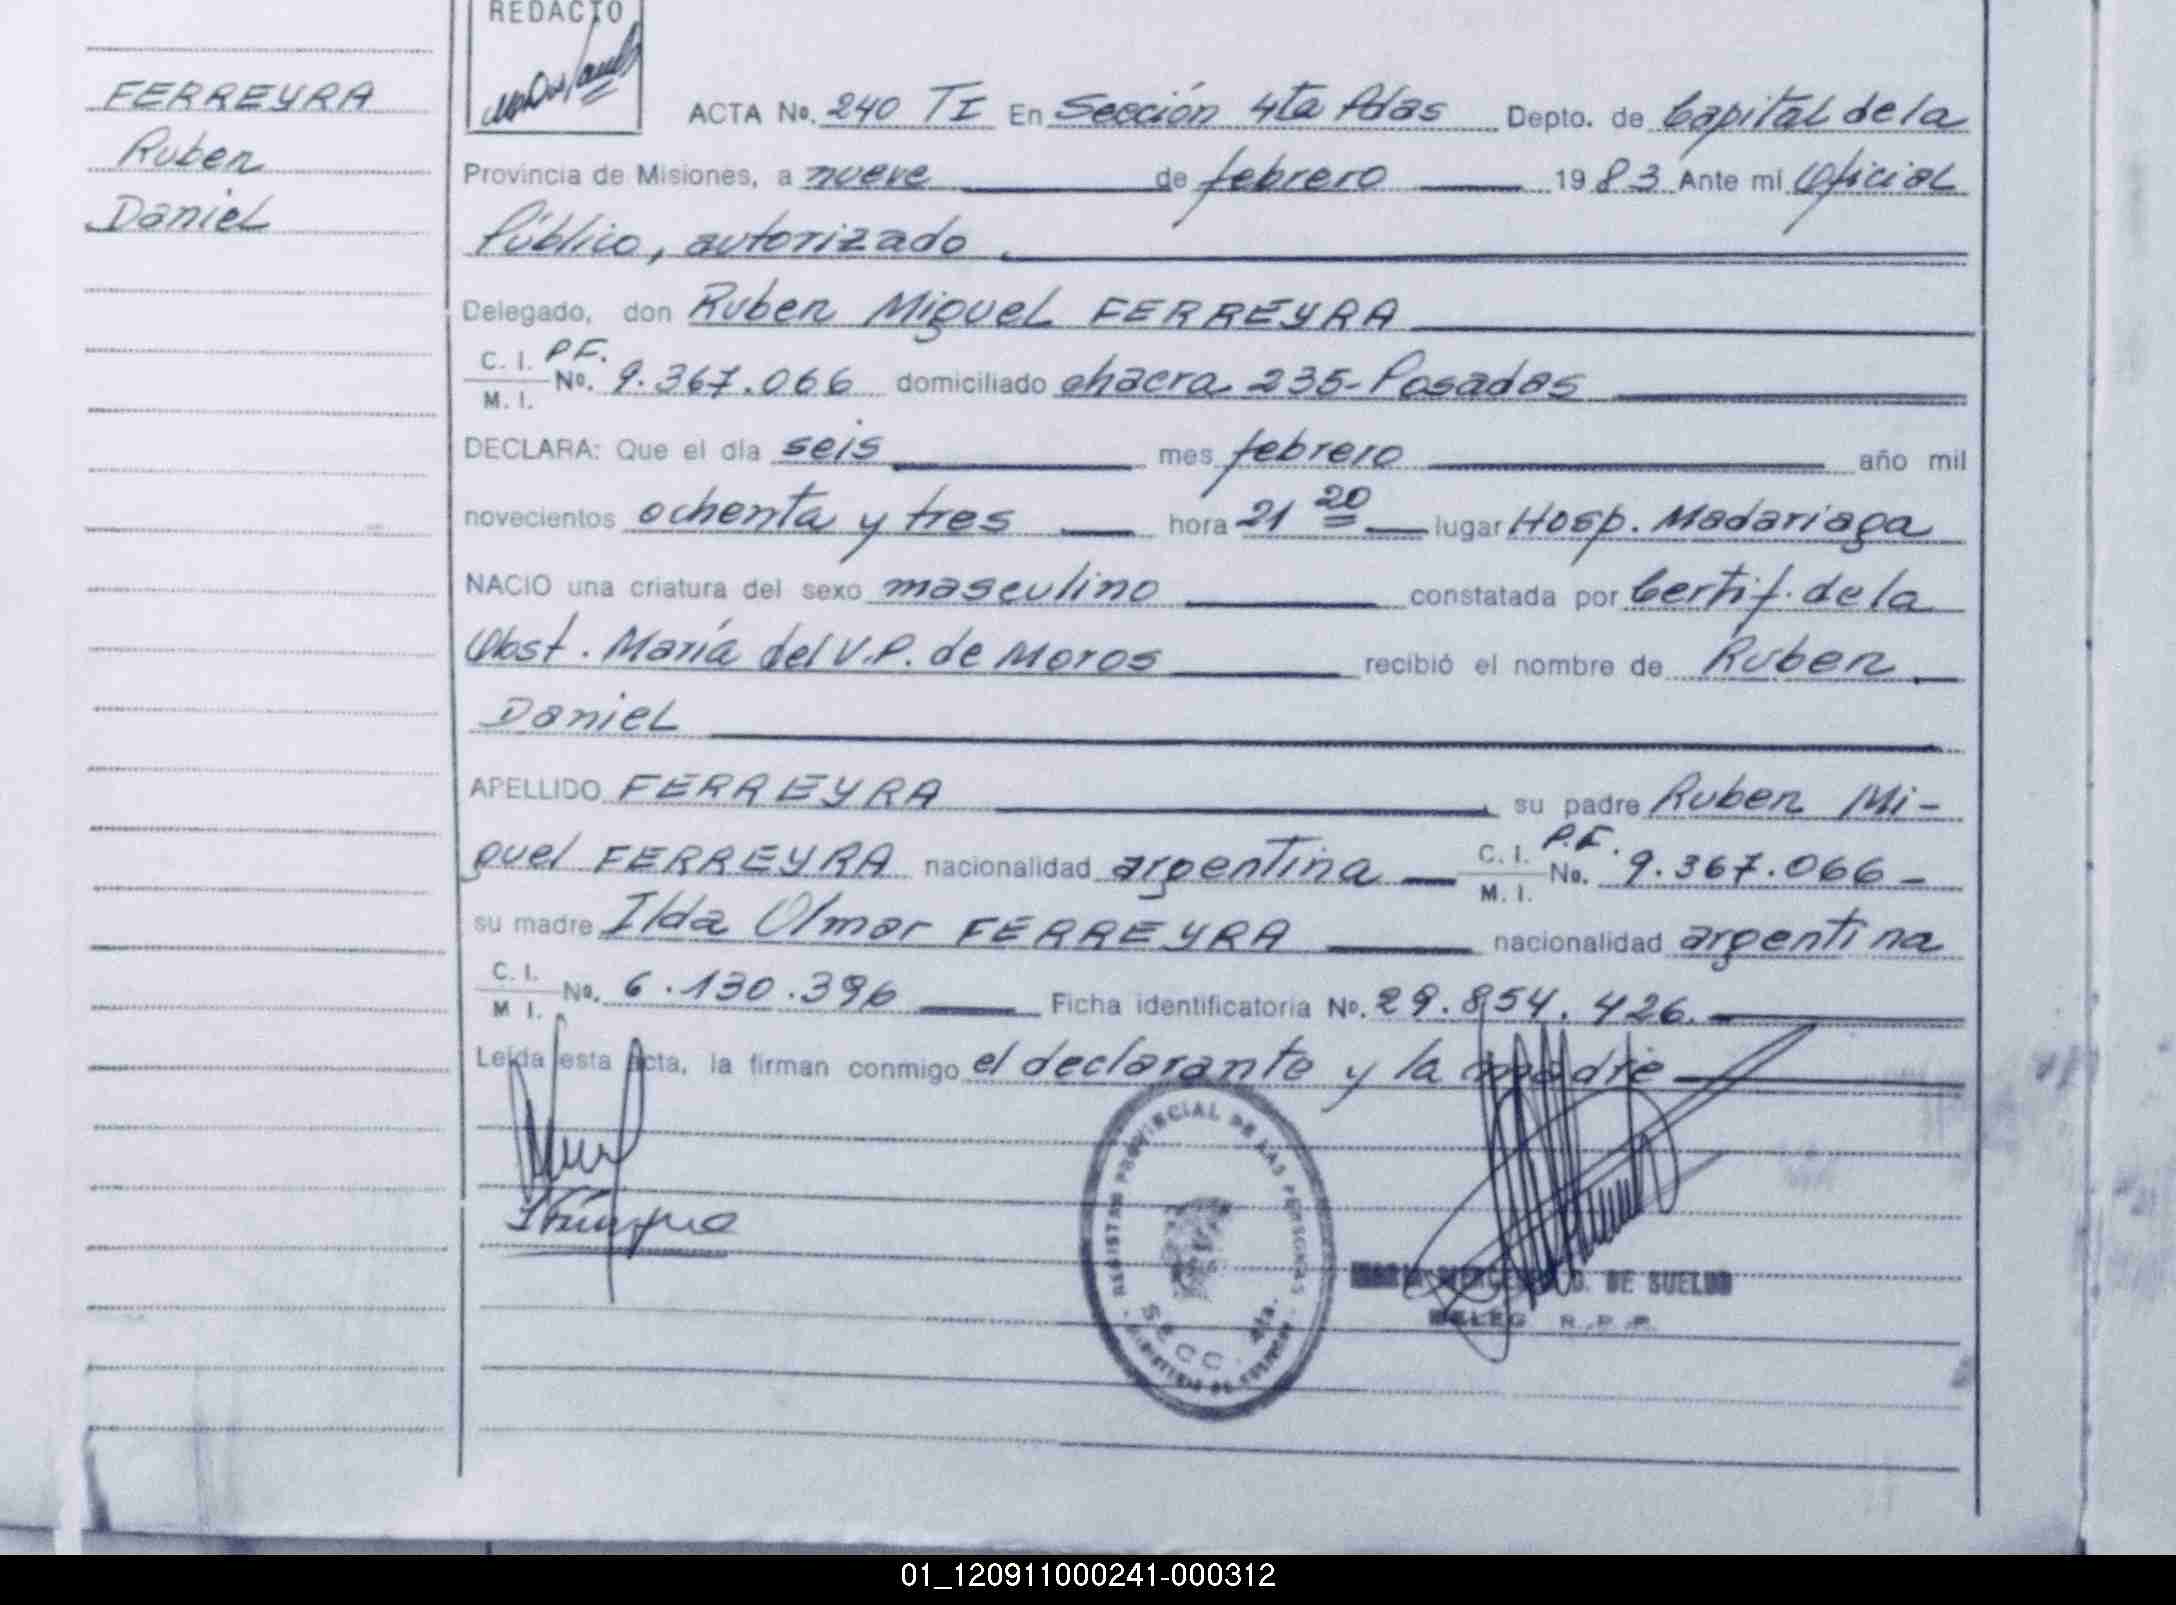 FERREYRA
Ruben
Daniel
REDACTO
ACTA No. 240 TI En Sección 4ta Pdas Depto. de Capital de la
Provincia de Misiones, a nueve de febrero 1983 Ante mí Oficial
Público, autorizado
Delegado, don Ruben Miguel FERREYRA
C. I. P.F.
M. I. No. 9.367.066 domiciliado chacra 235-Posadas
DECLARA: Que el día seis mes febrero año mil
novecientos ochenta y tres hora 21 20 lugar Hosp. Madariaga
NACIO una criatura del sexo masculino constatada por Certif. de la
Obst. María del V.P. de Moros recibió el nombre de Ruben
Daniel
APELLIDO FERREYRA su padre Ruben Mi-
guel FERREYRA nacionalidad argentina C. I. M. I. P.F. No. 9.367.066-
su madre Ilda Olmar FERREYRA nacionalidad argentina
C. I. M I. No. 6.130.396 Ficha identificatoria No. 29.854.426.
Leída esta acta, la firman conmigo el declarante y la madre
REGISTRO PROVINCIAL DE LAS PERSONAS
SECC. 4ta.
DE SUELDO
DELEG R.P.P.
01_120911000241-000312